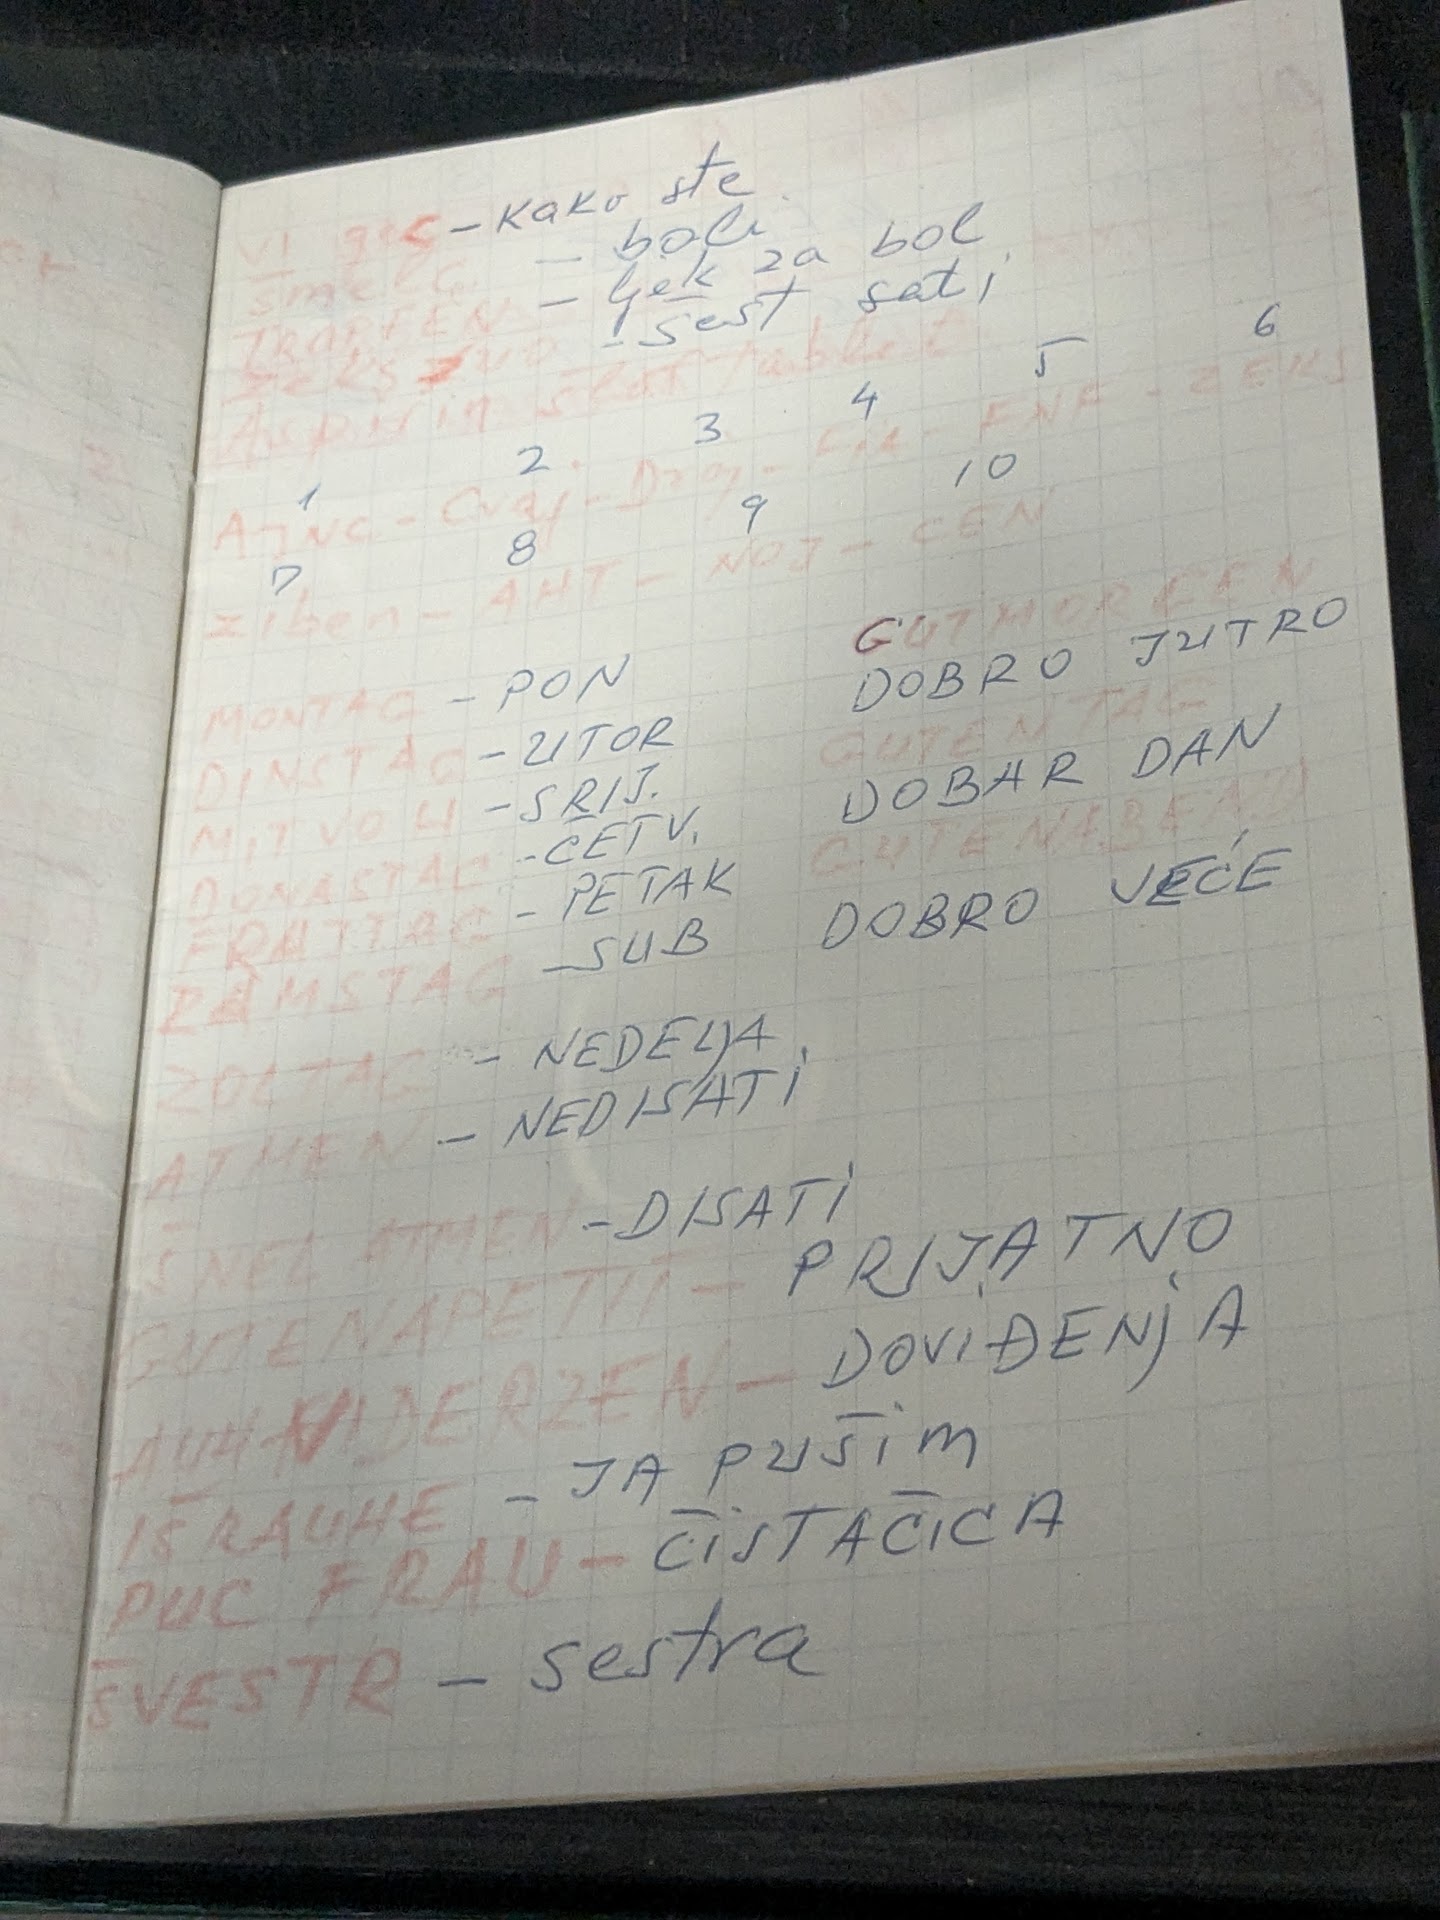 VI gec - kako ste
šmelc - boli
TROPFEN - ljek za bol
zeks - šest sati
Aspirin šlaf tablet
1 2 3 4 5 6
AJNC - Cvaj - Draj - FIR - FNF - ZEKS
7 8 9 10
ziben - AHT - NOJ - CEN
GUTMORGEN
MONTAG - PON DOBRO JUTRO
DINSTAG - UTOR GUTEN TAG
MITVOH - SRIJ. DOBAR DAN
DONASTAG - ČETV. GUTENABEND
FRAJTAG - PETAK DOBRO VEĆE
ZAMSTAG - SUB
ZOLTAG - NEDELJA
ATMEN - NEDISATI
ŠNEL ATMEN - DISATI
GUTENAPETIT - PRIJATNO
AUFVIDERZEN - DOVIĐENJA
IŠ RAUHE - JA PUŠIM
PUC FRAU - ČISTAČICA
ŠVESTR - sestra